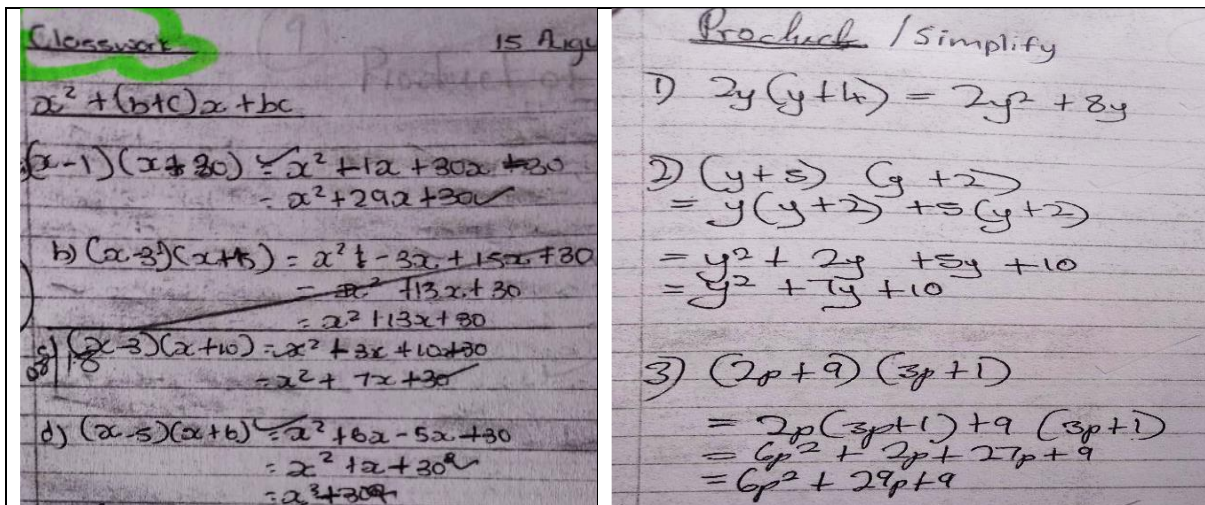 Classwork
15 Augu
Product of
x² + (b+c)x + bc
(x-1)(x+30) = x² +1x +30x +30
= x² +29x +30
b) (x-3)(x+15) = x² - 3x + 15x +30
= x² +13x + 30
= x² +13x +30
(x-3)(x+10) = x² + 3x + 10+30
= x² + 7x +30
d) (x-5)(x+6) = x² +6x - 5x +30
= x² +x +30
Product / Simplify
1) 2y(y+4) = 2y² + 8y
2) (y+5) (y +2)
= y(y+2) +5(y+2)
= y² + 2y +5y +10
= y² + 7y +10
3) (2p+9) (3p+1)
= 2p(3p+1) +9 (3p+1)
= 6p² + 2p + 27p + 9
= 6p² + 29p +9